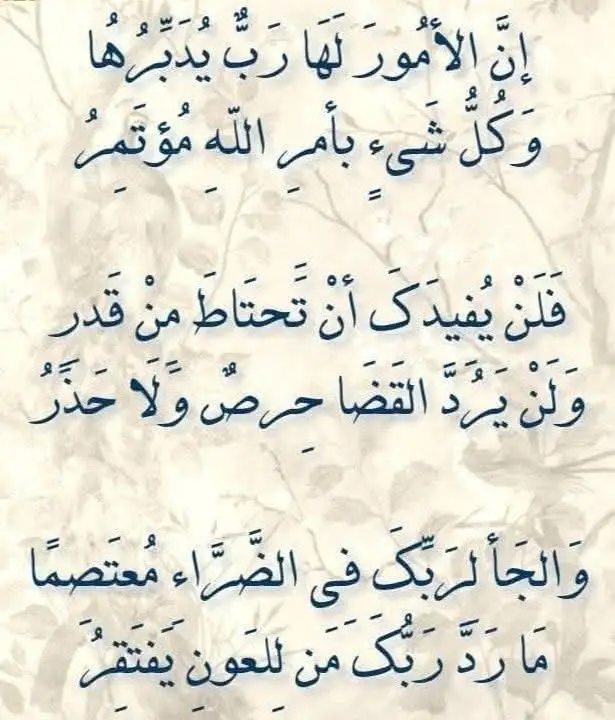 إنَّ الأمُورَ لَهَا رَبٌّ يُدَبِّرُهُا
وَكُلُّ شَىءٍ بأمرِ اللّهِ مُؤتَمِرُ
فَلَنْ يُفيدَكَ أنْ تَحتَاطَ منْ قَدر
وَلَنْ يَرُدَّ القَضَا حِرصٌ وَّلَا حَذَرُ
وَالجَأ لرَبِّكَ فى الضَّرَّاء مُعتَصمًا
مَا رَدَّ رَبُّكَ مَن لِلعَونِ يَفتَقِرُ